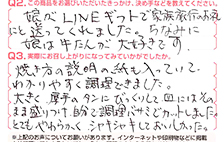 Q2. この商品をお選びいただいたきっかけ、決め手などを教えてください。
娘がLINEギフトで家族旅行のお礼
にと送ってくれました。ちなみに
娘は牛たんが大好きです
Q3. 実際にお召し上がりになってみていかがでしたか。
焼き方の説明の紙も入ってい
わかりやすく調理できました。
大きく厚手のタンにびっくりして皿にはその
まま盛りつけ、卓で調理バサミでカットしました。
とてもやわらかく シャキシャキしておいしかった。
※上記のお声についてお願いがあります。インターネットや印刷物などに掲載